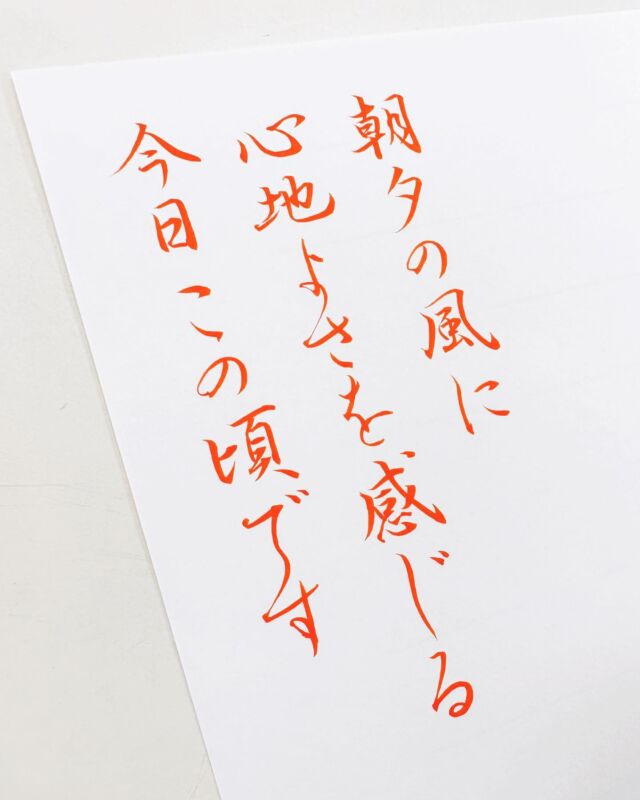 朝夕の風に
心地よさを感じる
今日この頃です